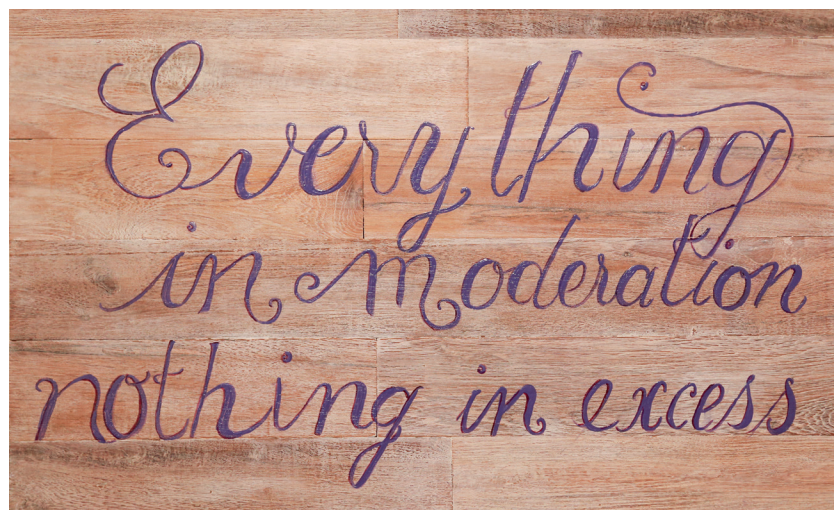 Everything
in moderation
nothing in excess